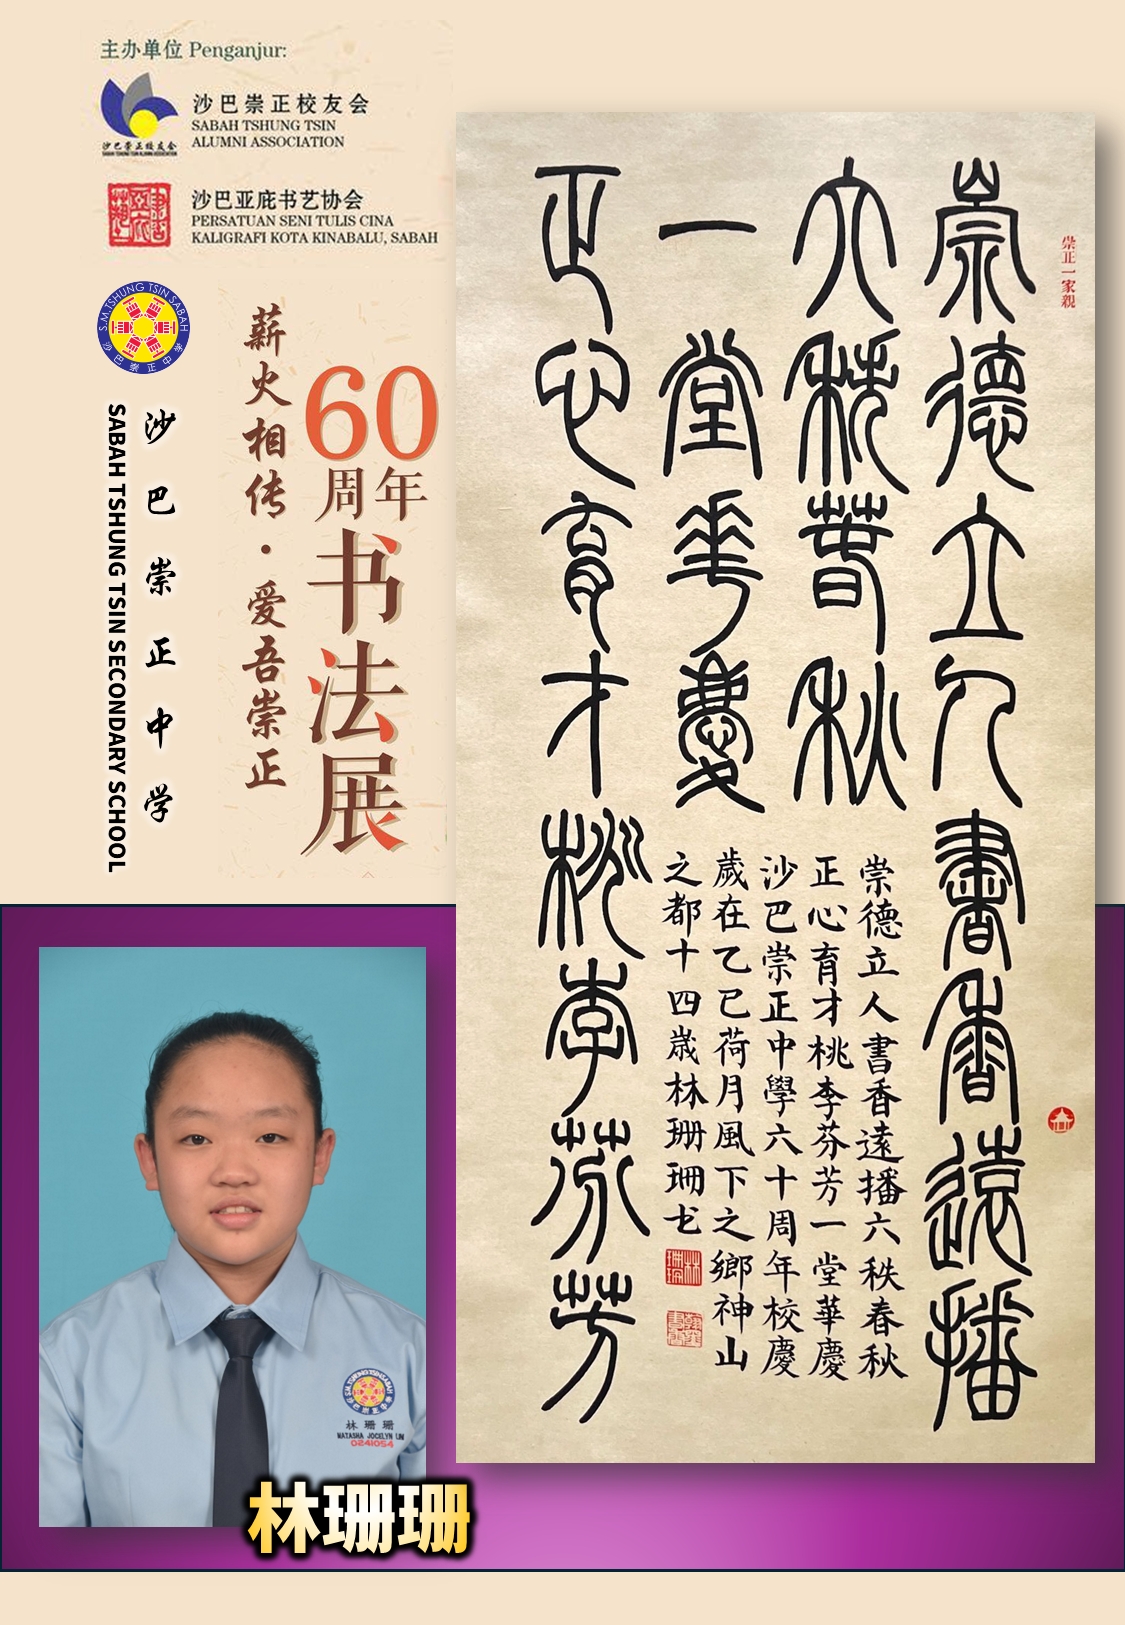 主办单位 Penganjur:
沙巴崇正校友会
沙巴崇正校友会
SABAH TSHUNG TSIN
ALUMNI ASSOCIATION
沙巴亚庇书艺协会
PERSATUAN SENI TULIS CINA
KALIGRAFI KOTA KINABALU, SABAH
S.M. TSHUNG TSIN SABAH
沙巴崇正中学
沙巴崇正中学
SABAH TSHUNG TSIN SECONDARY SCHOOL
薪火相传·爱吾崇正
60
周年
书法展
崇正一家親
崇德立人書香遠播
六秩春秋
一堂華慶
正心育才桃李芬芳
崇德立人書香遠播六秩春秋
正心育才桃李芬芳一堂華慶
沙巴崇正中學六十周年校慶
歲在乙巳荷月風下之鄉神山
之都十四歲林珊珊书
S.M. TSHUNG TSIN SABAH
沙巴崇正中学
林珊珊
NATASHA JOCELYN LIM
0241054
林珊珊